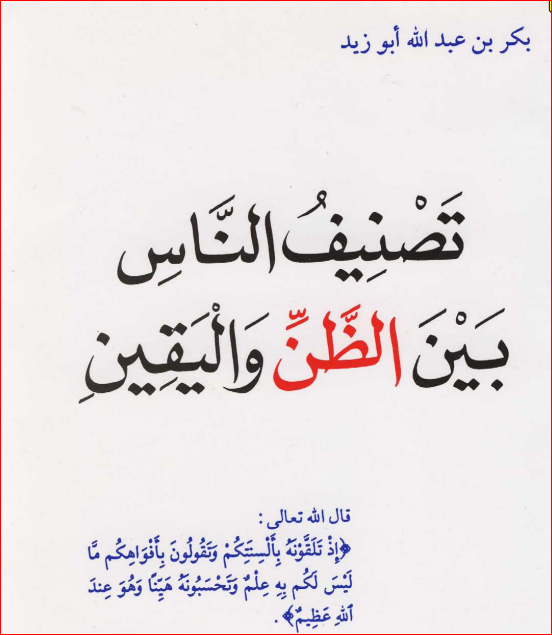 بكر بن عبد الله أبو زيد
تَصْنِيفُ النَّاسِ
بَيْنَ الظَّنِّ وَالْيَقِينِ
قال الله تعالى :
﴿إِذْ تَلَقَّوْنَهُ بِأَلْسِنَتِكُمْ وَتَقُولُونَ بِأَفْوَاهِكُم مَّا
لَيْسَ لَكُم بِهِ عِلْمٌ وَتَحْسَبُونَهُ هَيِّنًا وَهُوَ عِندَ
اللهِ عَظِيمٌ﴾ .